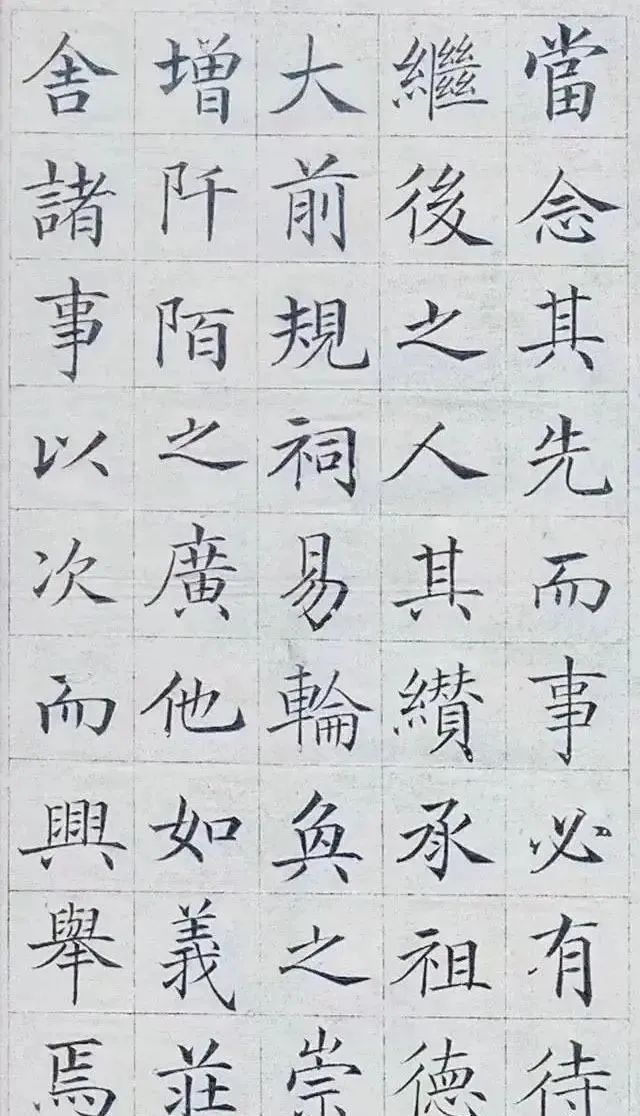 當念其先而事必有待
繼後之人其纘承祖德
大前規祠易輪奐之崇
增阡陌之廣他如義莊
舍諸事以次而興舉焉